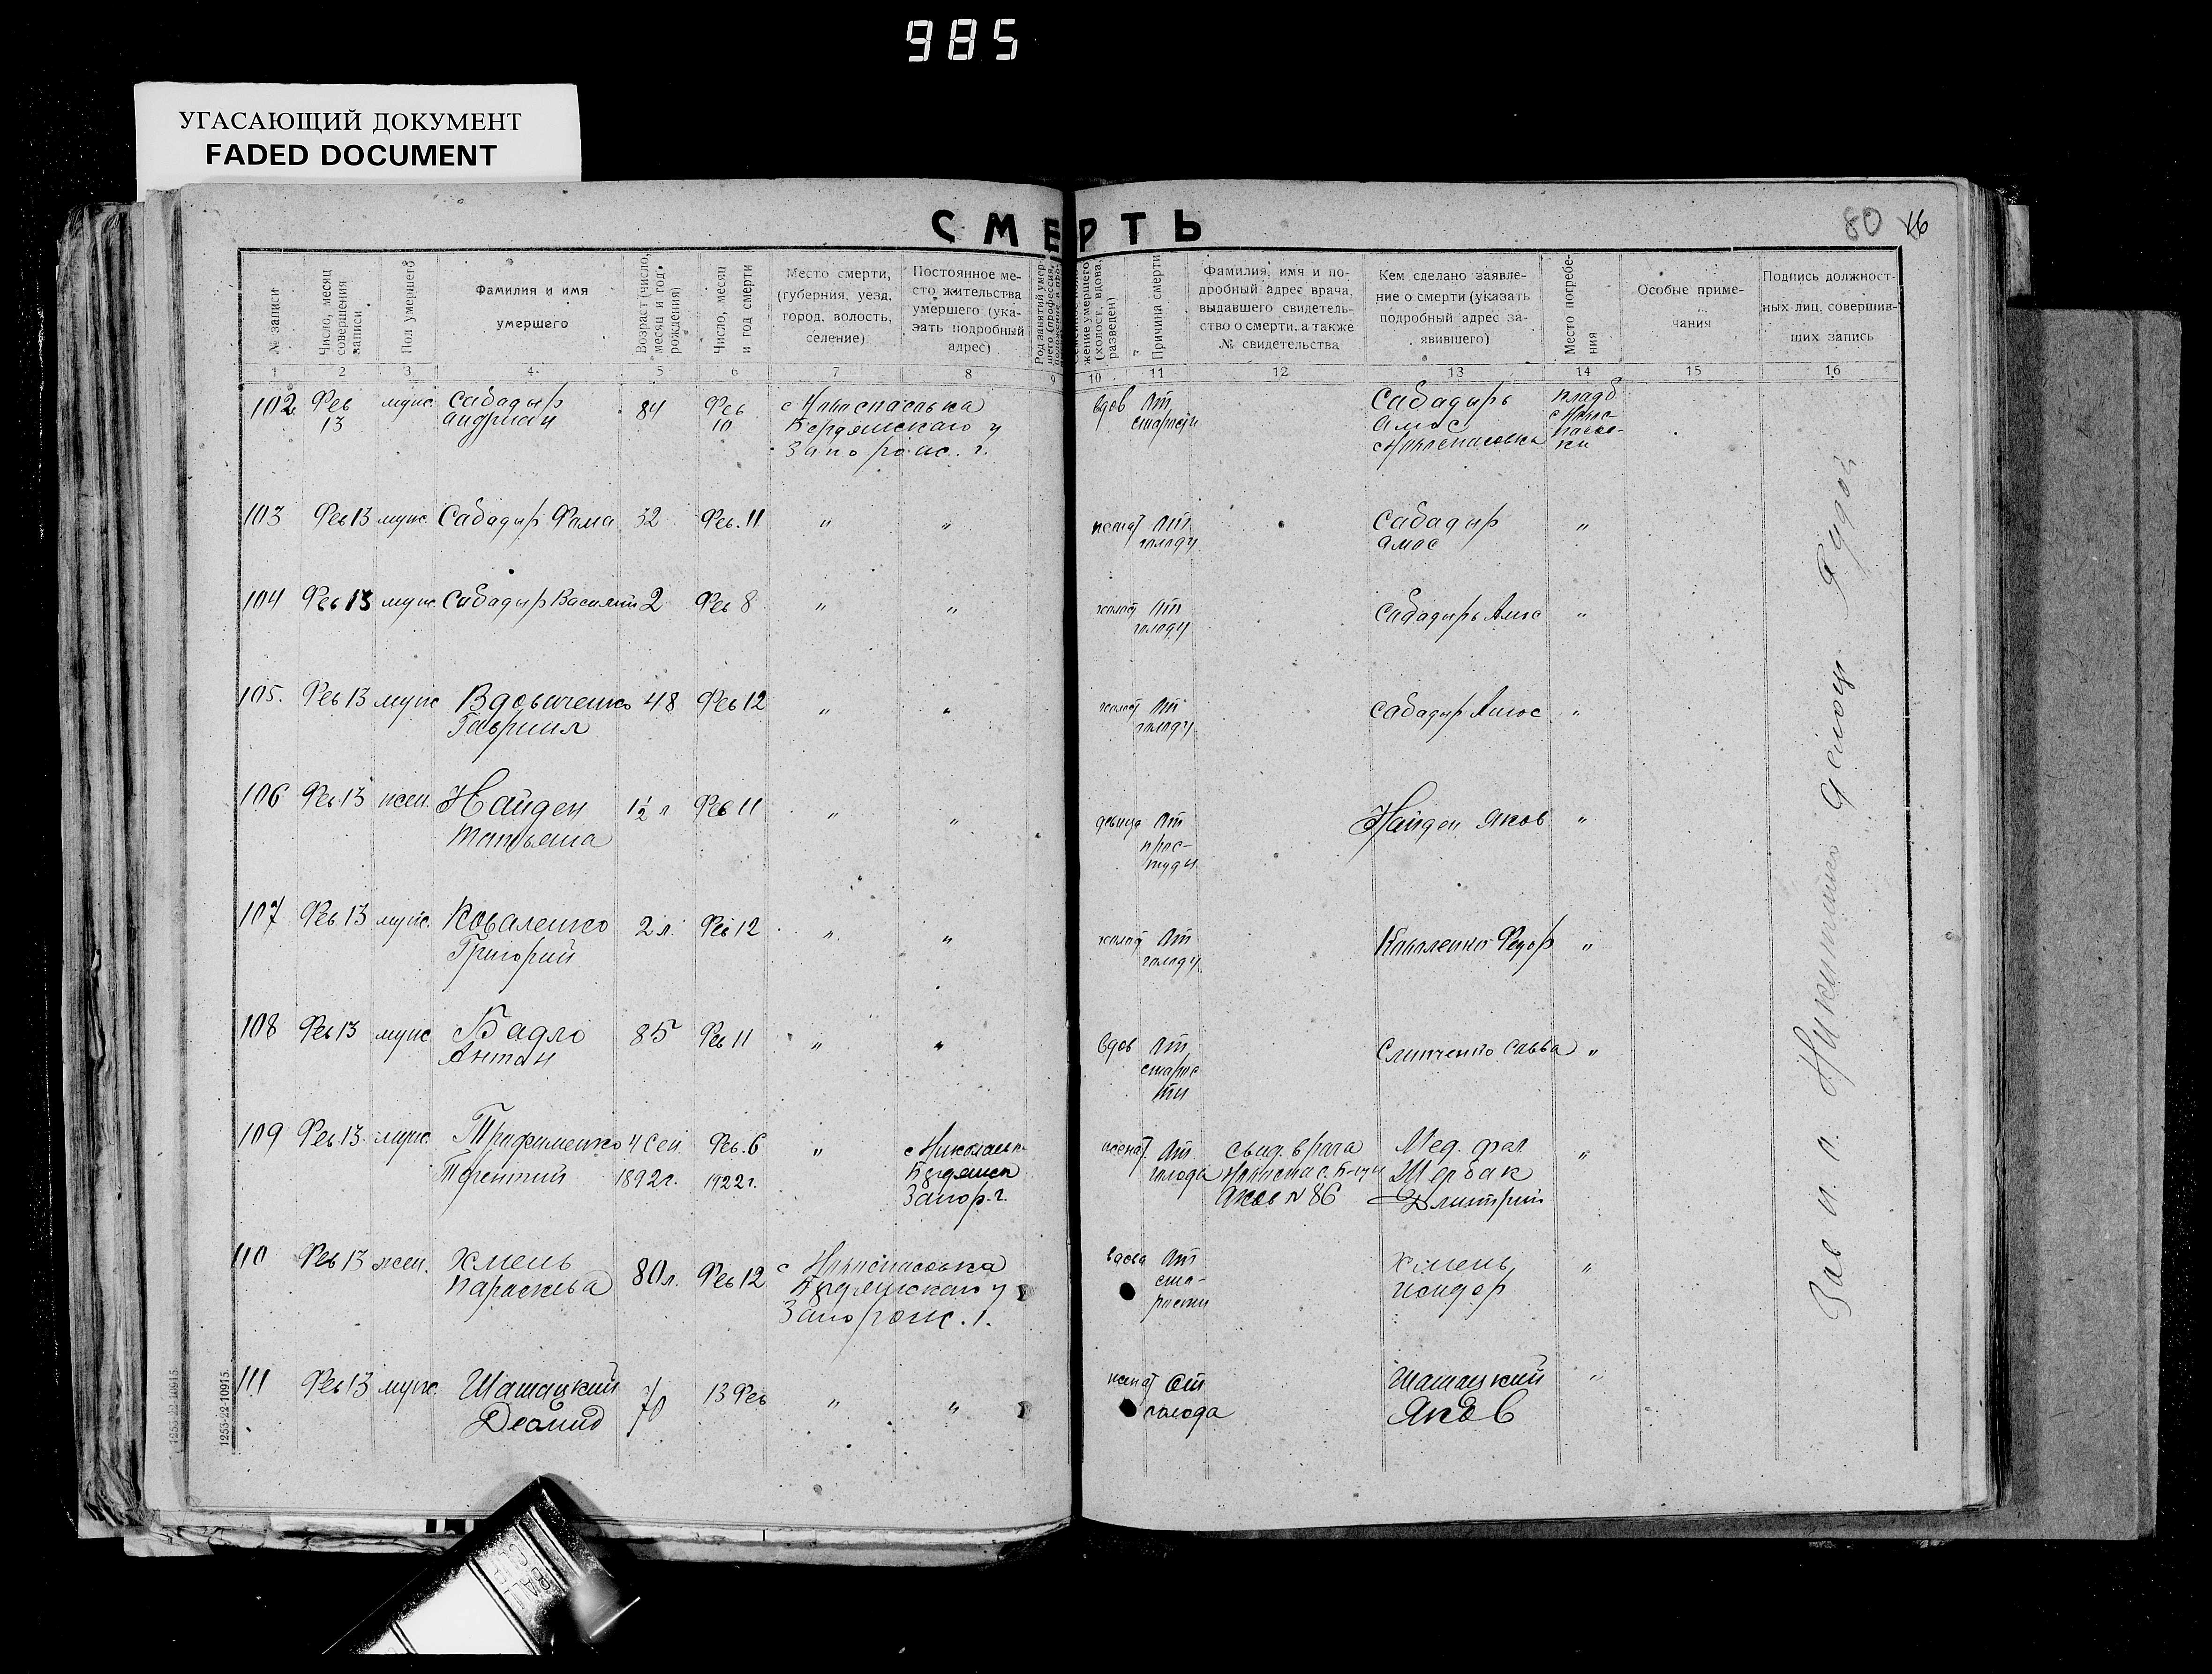 985
УГАСАЮЩИЙ ДОКУМЕНТ
FADED DOCUMENT
СМЕРТЬ
80 16
№ записи
Число, месяц совершения записи
Пол умершего
Фамилия и имя умершего
Возраст (число, месяц и год рождения)
Число, месяц и год смерти
Место смерти, (губерния, уезд, город, волость, селение)
Постоянное место жительства умершего (указать подробный адрес)
Причина смерти
Фамилия, имя и подробный адрес врача, выдавшего свидетельство о смерти, а также № свидетельства
Кем сделано заявление о смерти (указать подробный адрес заявившего)
Место погребения
Особые примечания
Подпись должностных лиц, совершивших запись
1 2 3 4 5 6 7 8 9 10 11 12 13 14 15 16
102 Фев 13 муж. Сабадыр Андриан 84 Фев 10 с Новоспасовка Бердянскаго у Запорож. г. вдов От старости Сабадырь Амос с Новоспасовка кладб с Новоспасовки
103 Фев 13 муж. Сабадыр Фома 32 Фев. 11 " " женат От голоду Сабадыр Амос "
104 Фев 13 муж Сабадыр Василий 2 Фев 8 " " холост От голоду Сабадырь Амос "
105. Фев 13 муж Вдовиченко Гавриил 48 Фев 12 " " холост От голоду Сабадыр Амос "
106 Фев 13 жен. Найден Татьяна 1½ л Фев 11 " " девица От простуды Найден Яков "
107 Фев 13 муж. Коваленко Григорий 2 л. Фев 12 " " холост От голоду Коваленко Федор "
108 Фев 13 муж Бадло Антон 85 Фев 11 " " вдов От старости Слипченко Савва "
109 Фев. 13 муж. Трофименко Терентий 4 Сен 1892 г. Фев. 6 1922 г. " с Николаев Бердянск Запор. г. женат От голода свид. врача Яков N 86 Мед. фел Щербак Дмитрий "
110 Фев 13 жен. Хмень Параскева 80 л. Фев 12 с Новоспасовка Бердянскаго у Запорож. г. вдова От старости Хмень Исидор "
111 Фев 13 муж. Шатацкий Деомид 70 13 Фев " " женат От голода Шатацкий Яков "
Зав п. о. Никитенко
1253-22-10915.
1253-22-10915.